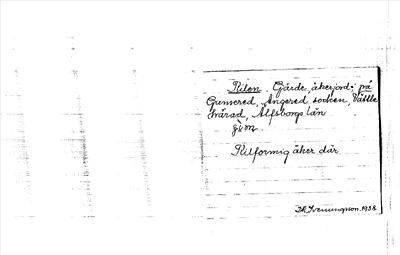 Kilen. Gärde, åkerjord; på
Gunnered, Angered socken, Vättle
härad, Älfsborgs län
Kilformig åker där.
1938